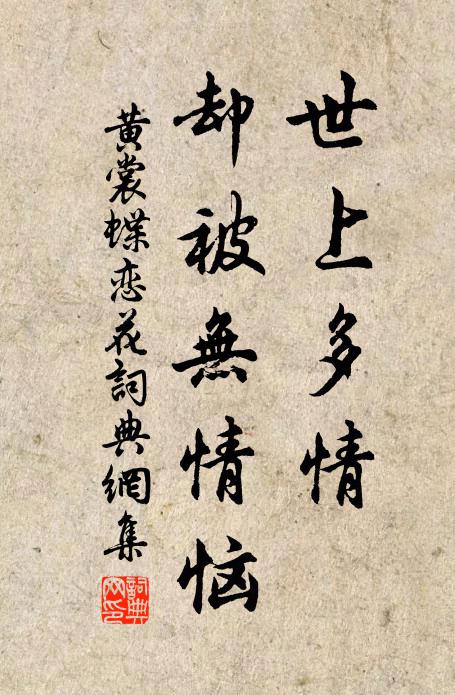 世上多情
却被無情恼
黄裳蝶恋花詞典網集
詞典網印